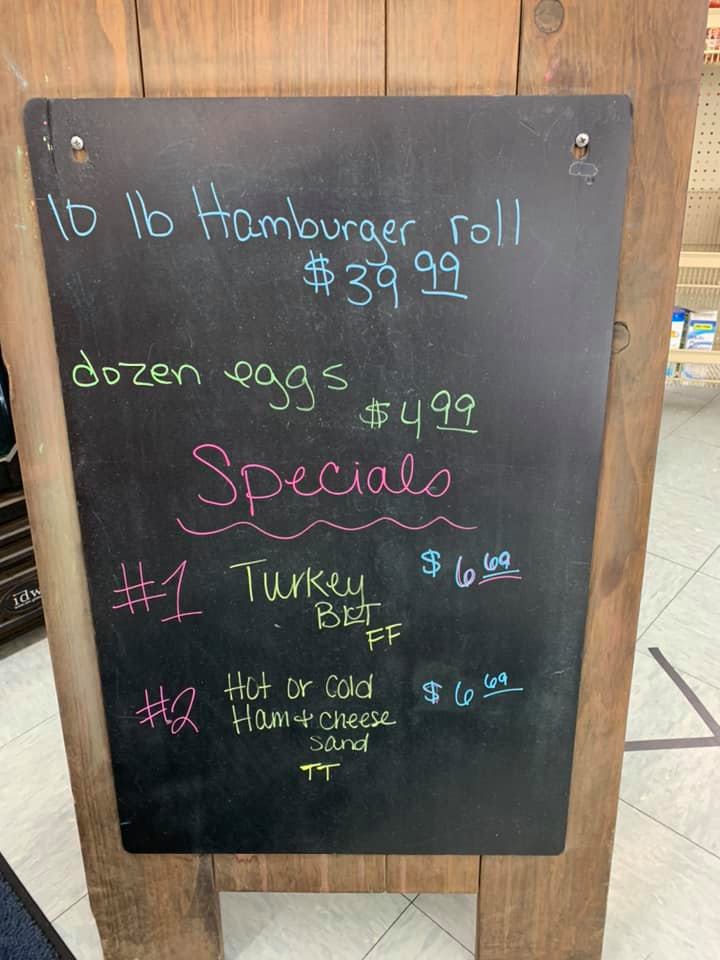 10 lb Hamburger roll
$39 99
dozen eggs
$4 99
Specials
#1 Turkey $6 69
BLT
FF
#2 Hot or Cold $6 69
Ham + cheese
sand
TT